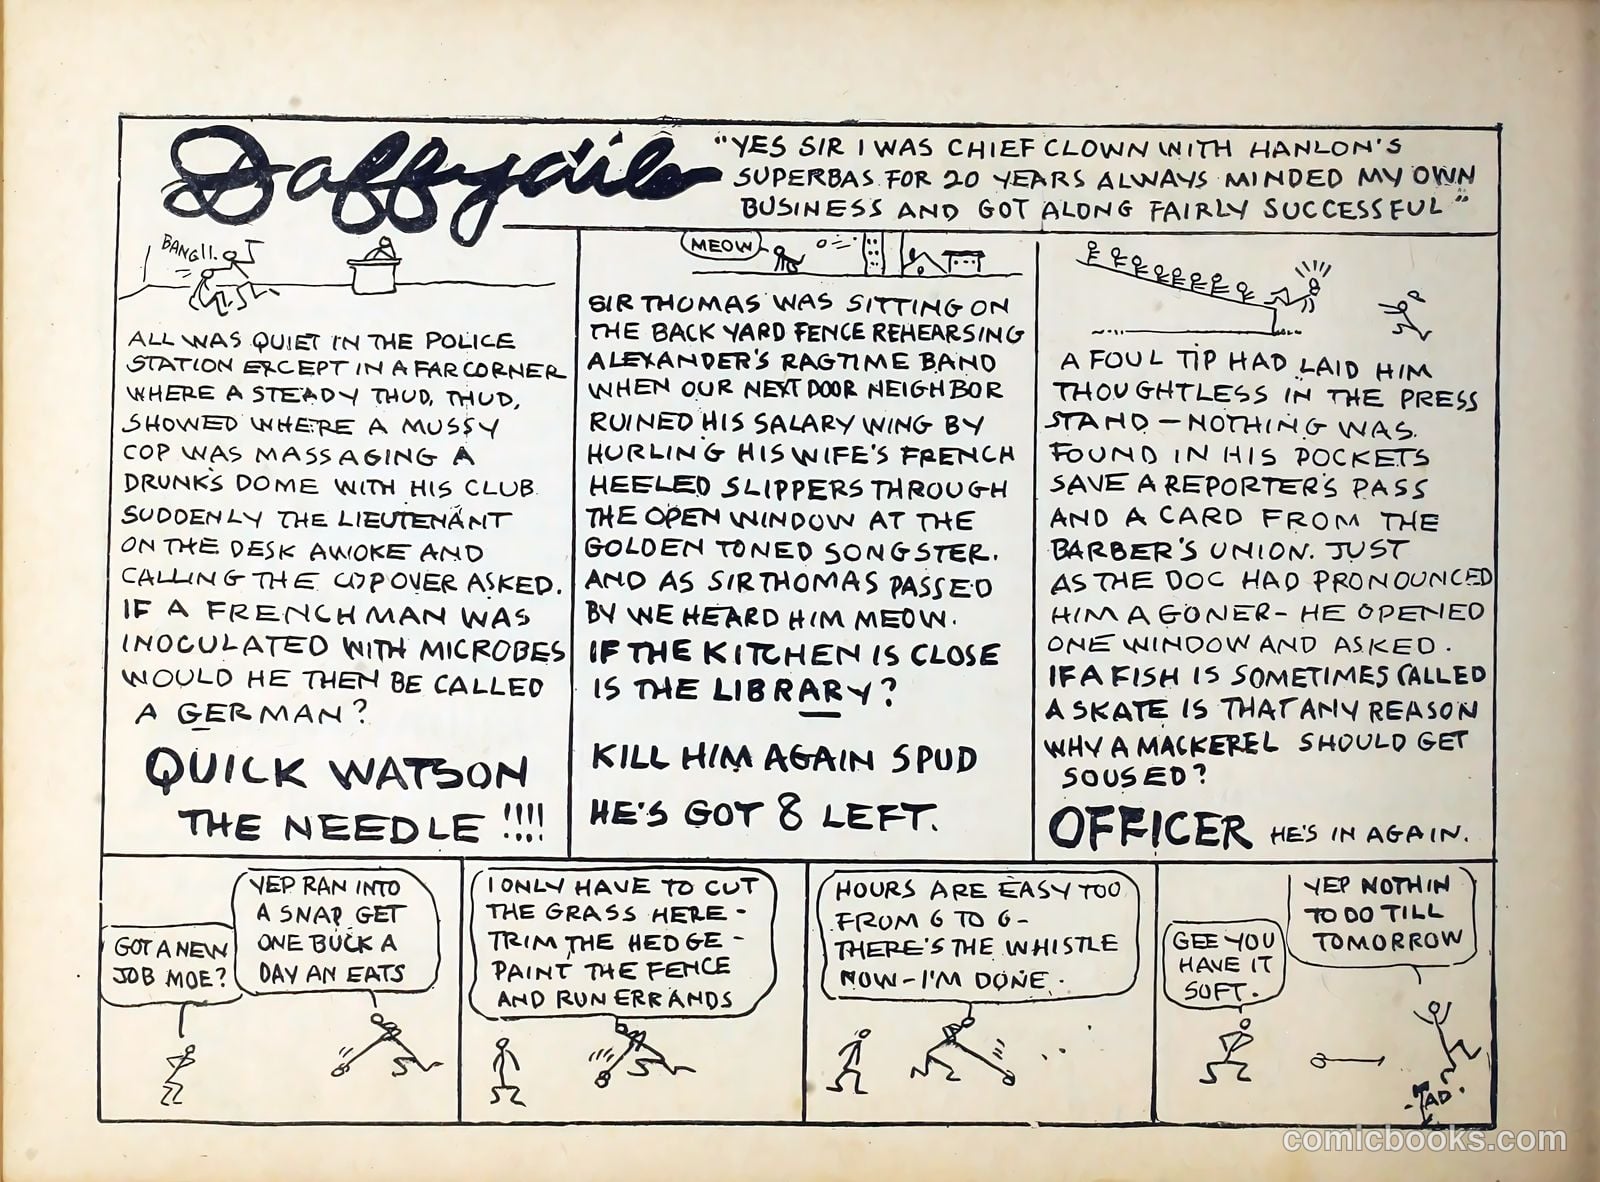 Daffydils
"YES SIR I WAS CHIEF CLOWN WITH HANLON'S
SUPERBAS FOR 20 YEARS ALWAYS MINDED MY OWN
BUSINESS AND GOT ALONG FAIRLY SUCCESSFUL"
BANG!!.
ALL WAS QUIET IN THE POLICE
STATION EXCEPT IN A FAR CORNER
WHERE A STEADY THUD, THUD,
SHOWED WHERE A MUSSY
COP WAS MASSAGING A
DRUNK'S DOME WITH HIS CLUB
SUDDENLY THE LIEUTENANT
ON THE DESK AWOKE AND
CALLING THE COP OVER ASKED.
IF A FRENCHMAN WAS
INOCULATED WITH MICROBES
WOULD HE THEN BE CALLED
A GERMAN?
QUICK WATSON
THE NEEDLE !!!!
MEOW
SIR THOMAS WAS SITTING ON
THE BACK YARD FENCE REHEARSING
ALEXANDER'S RAGTIME BAND
WHEN OUR NEXT DOOR NEIGHBOR
RUINED HIS SALARY WING BY
HURLING HIS WIFE'S FRENCH
HEELED SLIPPERS THROUGH
THE OPEN WINDOW AT THE
GOLDEN TONED SONGSTER.
AND AS SIR THOMAS PASSED
BY WE HEARD HIM MEOW.
IF THE KITCHEN IS CLOSE
IS THE LIBRARY?
KILL HIM AGAIN SPUD
HE'S GOT 8 LEFT.
A FOUL TIP HAD LAID HIM
THOUGHTLESS IN THE PRESS
STAND — NOTHING WAS.
FOUND IN HIS POCKETS
SAVE A REPORTER'S PASS
AND A CARD FROM THE
BARBER'S UNION. JUST
AS THE DOC HAD PRONOUNCED
HIM A GONER - HE OPENED
ONE WINDOW AND ASKED.
IF A FISH IS SOMETIMES CALLED
A SKATE IS THAT ANY REASON
WHY A MACKEREL SHOULD GET
SOUSED?
OFFICER HE'S IN AGAIN.
GOT A NEW
JOB MOE?
YEP RAN INTO
A SNAP GET
ONE BUCK A
DAY AN EATS
I ONLY HAVE TO CUT
THE GRASS HERE -
TRIM THE HEDGE -
PAINT THE FENCE
AND RUN ERRANDS
HOURS ARE EASY TOO
FROM 6 TO 6 -
THERE'S THE WHISTLE
NOW - I'M DONE.
GEE YOU
HAVE IT
SOFT.
YEP NOTHIN
TO DO TILL
TOMORROW
TAD.
comicbooks.com